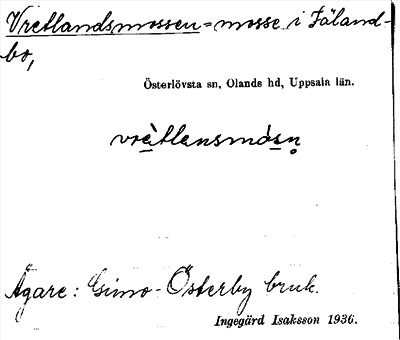 Vretlandsmossen = mosse i Jäland-
bo,
Österlövsta sn, Olands hd, Uppsala län.
vrètlansmå̀sn̥
Ägare: Gimo-Österby bruk.
Ingegärd Isaksson 1936.